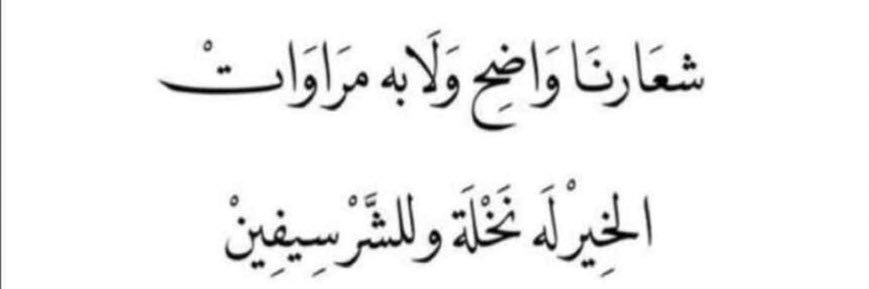 شعَارنَا وَاضحِ وَلَابه مرَاوَاتْ
الخِيرْ لَه نَخْلَة وللشَّرْ سِيفِينْ